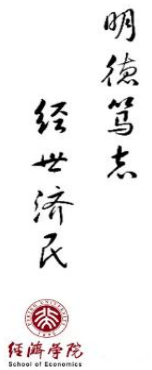 明德笃志
经世济民
經濟學院
School of Economics